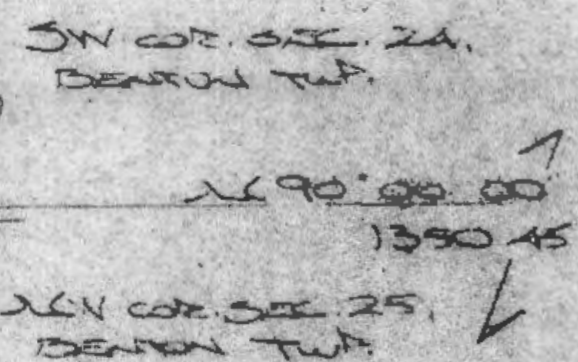 SW COR. SEC. 24,
BENTON TWP.
N 90° 00' 00"
1350.45
NW COR. SEC. 25,
BENTON TWP.